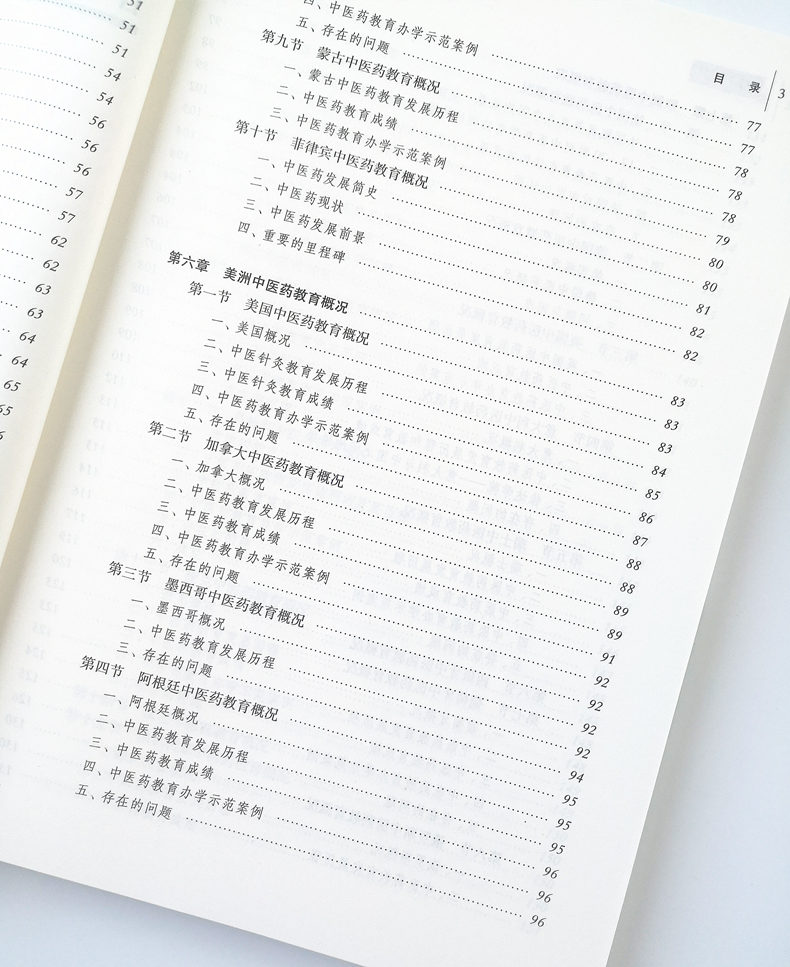 51
51
51
54
54
56
56
56
57
57
62
62
63
63
64
64
65
65
目 录 3
四、中医药教育办学示范案例 77
五、存在的问题 77
第九节 蒙古中医药教育概况 78
一、蒙古中医药教育发展历程 78
二、中医药教育成绩 78
三、中医药教育办学示范案例 79
第十节 菲律宾中医药教育概况 80
一、中医药发展简史 80
二、中医药现状 81
三、中医药发展前景 82
四、重要的里程碑 82
第六章 美洲中医药教育概况 83
第一节 美国中医药教育概况 83
一、美国概况 83
二、中医针灸教育发展历程 84
三、中医针灸教育成绩 85
四、中医药教育办学示范案例 86
五、存在的问题 87
第二节 加拿大中医药教育概况 88
一、加拿大概况 88
二、中医药教育发展历程 89
三、中医药教育成绩 89
四、中医药教育办学示范案例 91
五、存在的问题 92
第三节 墨西哥中医药教育概况 92
一、墨西哥概况 92
二、中医药教育发展历程 92
三、存在的问题 94
第四节 阿根廷中医药教育概况 95
一、阿根廷概况 95
二、中医药教育发展历程 95
三、中医药教育成绩 96
四、中医药教育办学示范案例 96
五、存在的问题 96